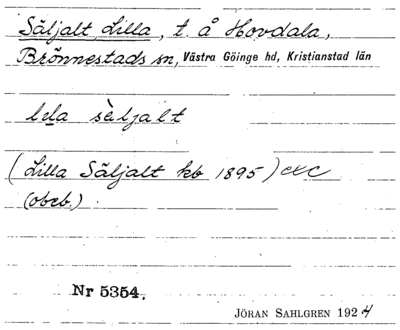 Säljalt, Lilla, t. å Hovdala,
Brönnestads sn, Västra Göinge hd, Kristianstad län
lıla sàljalt
(Lilla Säljalt kb 1895) exc
(obeb.)
Nr 5354.
JÖRAN SAHLGREN 1924